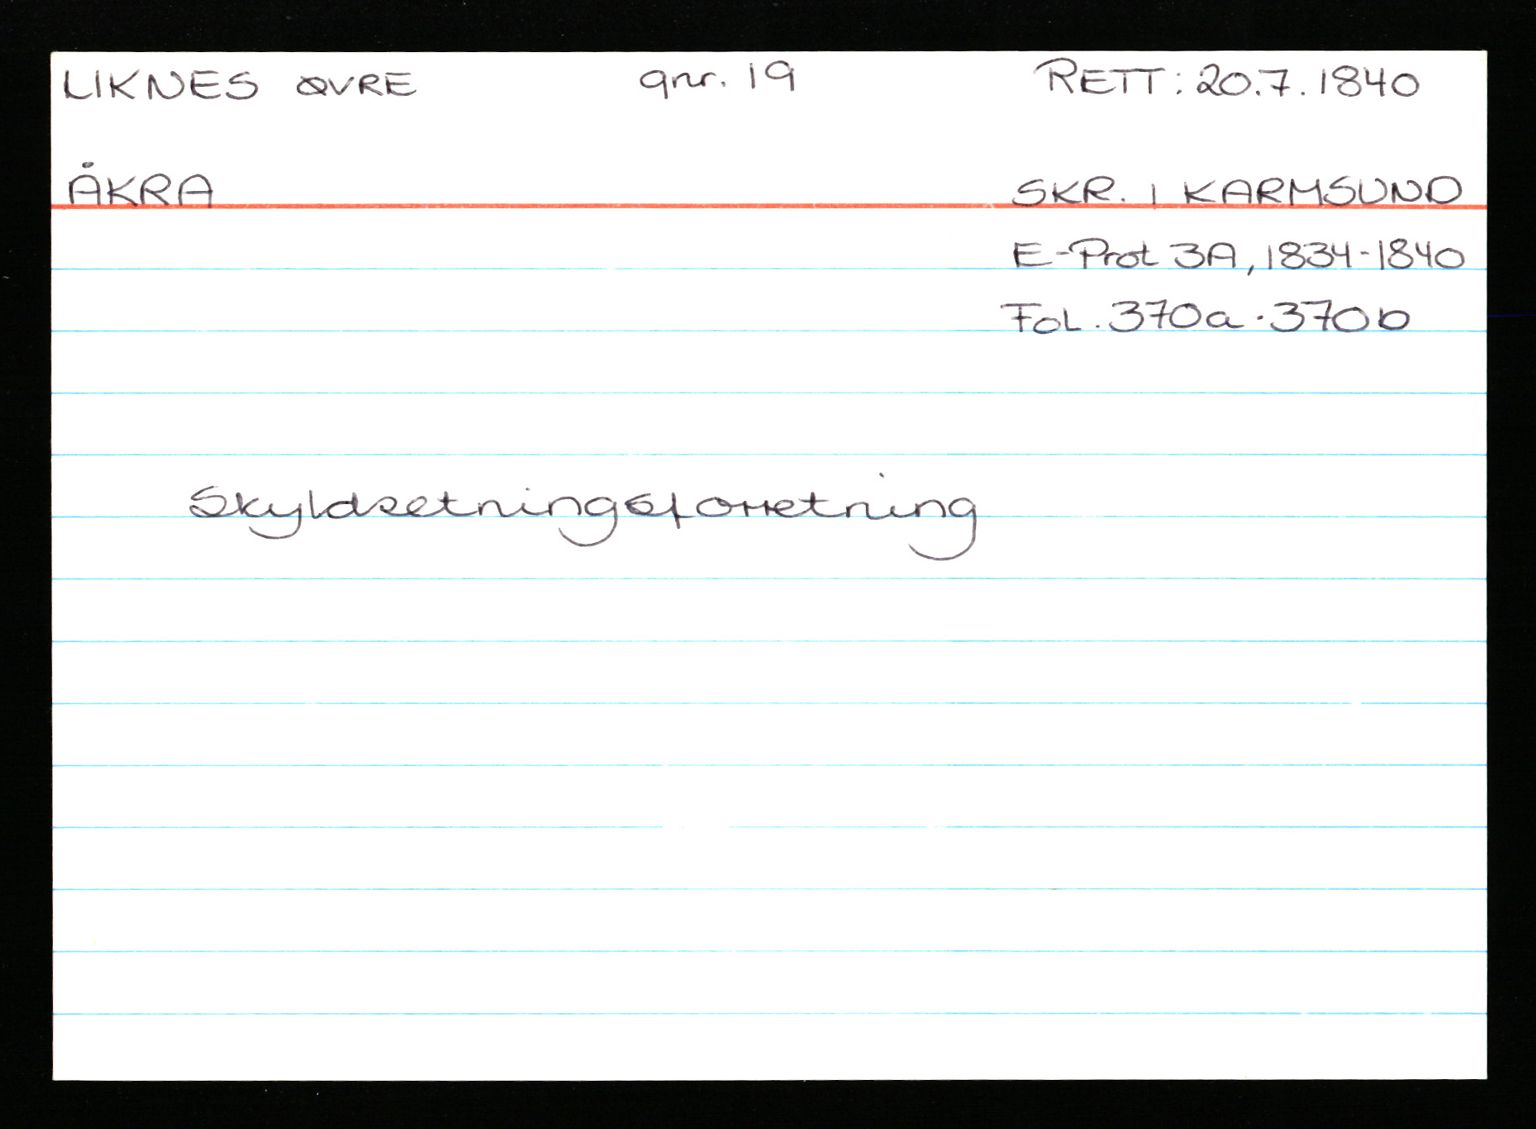 LIKNES ØVRE gnr. 19 RETT: 20.7.1840
ÅKRA SKR. I KARMSUND
E-Prot 3A, 1834-1840
Fol. 370a-370b
Skyldsetningsforretning